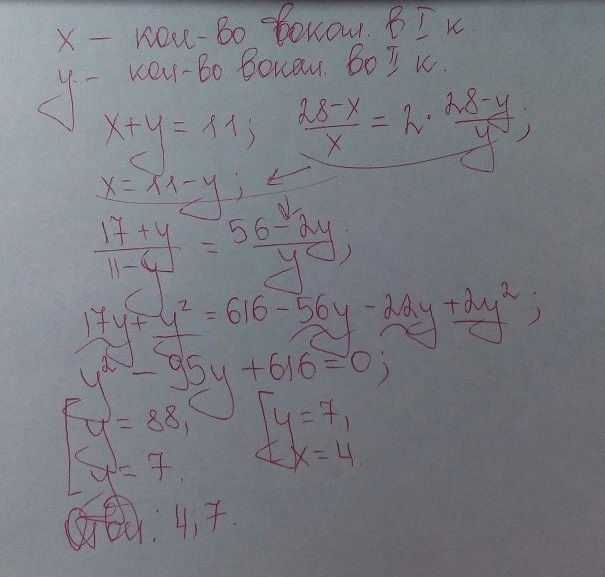 x – кол-во вокал. в I к.
y – кол-во вокал. во II к.
x+y=11; (28-x)/x = 2 · (28-y)/y;
x=11-y;
(17+y)/(11-y) = (56-2y)/y;
17y+y² = 616-56y-22y+2y²;
y² - 95y + 616 = 0;
[y=88, [y=7,
[y=7. x=4.
Ответ: 4; 7.